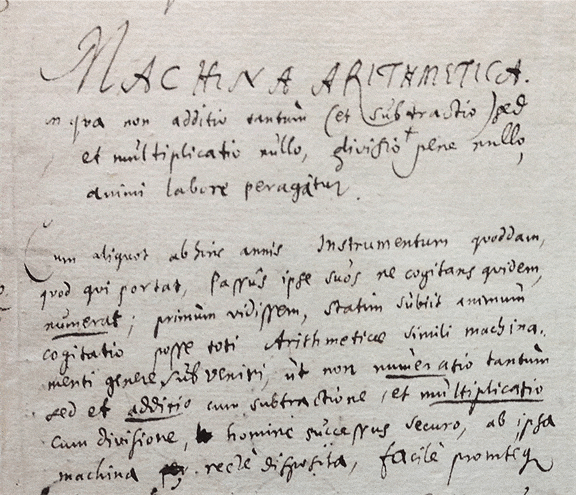 MACHINA ARITHMETICA.
in qva non additio tantùm (et subtractio) sed
et mùltiplicatio nùllo, divisio† pene nùllo,
animi labore peragàtur.
Cum aliquot abhinc annis Instrumentum quoddam,
quod qui portat, Passùs ipse suòs ne cogitans quidem,
numerat; primùm vidissem, statim sùbiit animùm
cogitatio posse toti Arithmeticae simili machina-
menti genere sùbveniri, ùt non nùmeratio tantùm
sed et additio cum subtractione, et mùltiplicatio
cum divisione, homine successus securo, ab ipsa
machina rectè disposita, facilè promteq